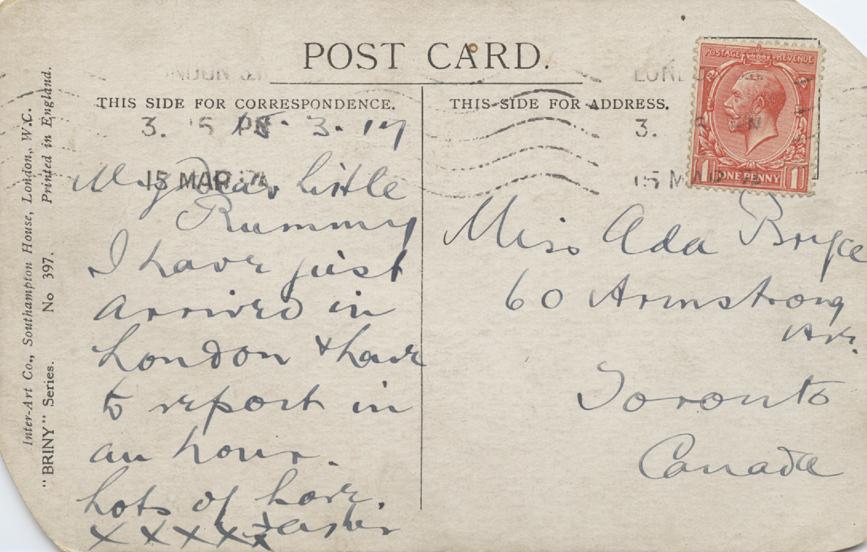 POST CARD.
THIS SIDE FOR CORRESPONDENCE.
THIS SIDE FOR ADDRESS.
Inter-Art Co., Southampton House, London, W.C.
"BRINY" Series. No 397. Printed in England.
15 MAR
3. 17
My Dear little
Rummy
I have just
arrived in
London & have
to report in
an hour.
Lots of love.
XXXXX
POSTAGE REVENUE
1 ONE PENNY 1
3.
15 M
Miss Ada Bryce
60 Armstrong
Av.
Toronto
Canada